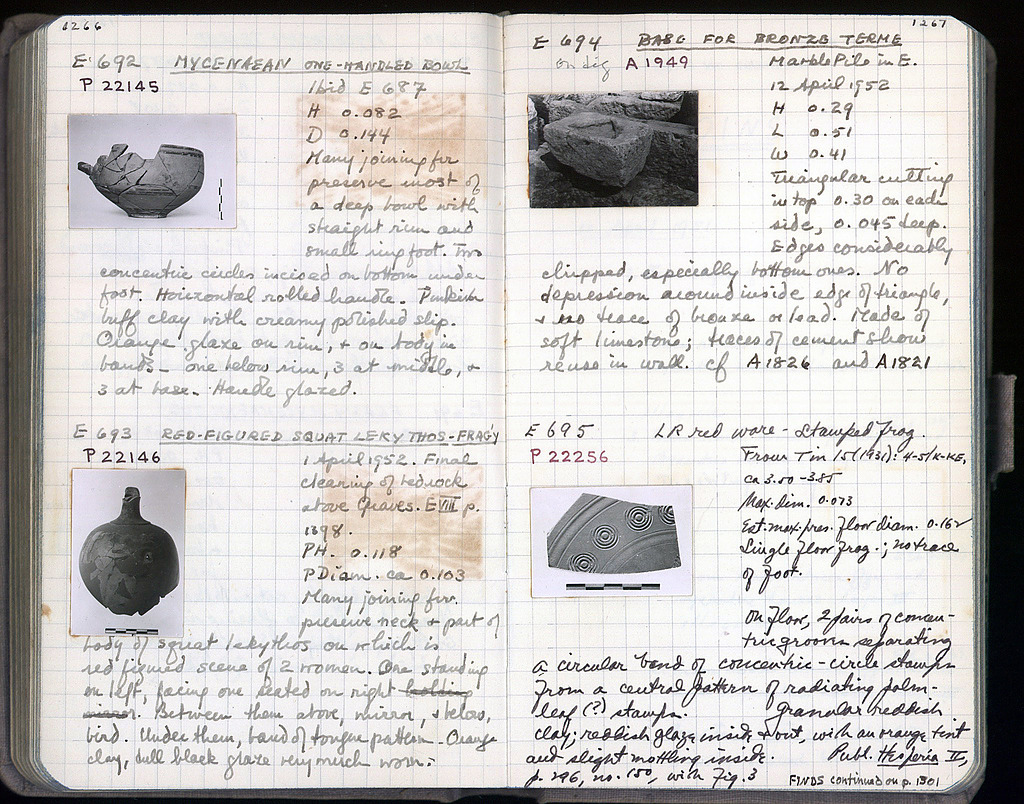 1266
E 692 MYCENAEAN ONE-HANDLED BOWL
P 22145
Ibid E 687
H 0.082
D 0.144
Many joining frr
preserve most of
a deep bowl with
straight rim and
small ring foot. Two
concentric circles incised on bottom under
foot. Horizontal rolled handle. Pinkish
buff clay with creamy polished slip.
Orange glaze on rim, + on body in
bands - one below rim, 3 at middle, +
3 at base. Handle glazed.
E 693 RED-FIGURED SQUAT LEKYTHOS-FRAG'Y
P 22146
1 April 1952. Final
cleaning of bedrock
above Graves. E VIII p.
1398.
PH. 0.118
P Diam. ca 0.103
Many joining frr.
preserve neck + part of
body of squat lekythos on which is
red figured scene of 2 women. One standing
on left, facing one seated on right holding
mirror. Between them above, mirror, + below,
bird. Under them, band of tongue pattern. Orange
clay, dull black glaze very much worn.
1267
E 694 BASE FOR BRONZE TERME
on dig A 1949
Marble Pile in E.
12 April 1952
H 0.29
L 0.51
W 0.41
Triangular cutting
in top 0.30 on each
side, 0.045 deep.
Edges considerably
chipped, especially bottom ones. No
depression around inside edge of triangle,
+ no trace of bronze or lead. Made of
soft limestone; traces of cement show
reuse in wall. cf A 1826 and A 1821
E 695 LR red ware - Stamped frag.
P 22256
From T in 15 (1931): 4-5/K-KE,
ca 3.50-3.85
Max. dim. 0.073
Est. max. pres. floor diam. 0.162
Single floor frag.; no trace
of foot.
On floor, 2 pairs of concen-
tric grooves separating
a circular band of concentric-circle stamps
from a central pattern of radiating palm-
leaf (?) stamps. Granular reddish
clay; reddish glaze inside + out, with an orange tint
and slight mottling inside. Publ. Hesperia II,
p. 296, no. 150, with Fig. 3
FINDS continued on p. 1301